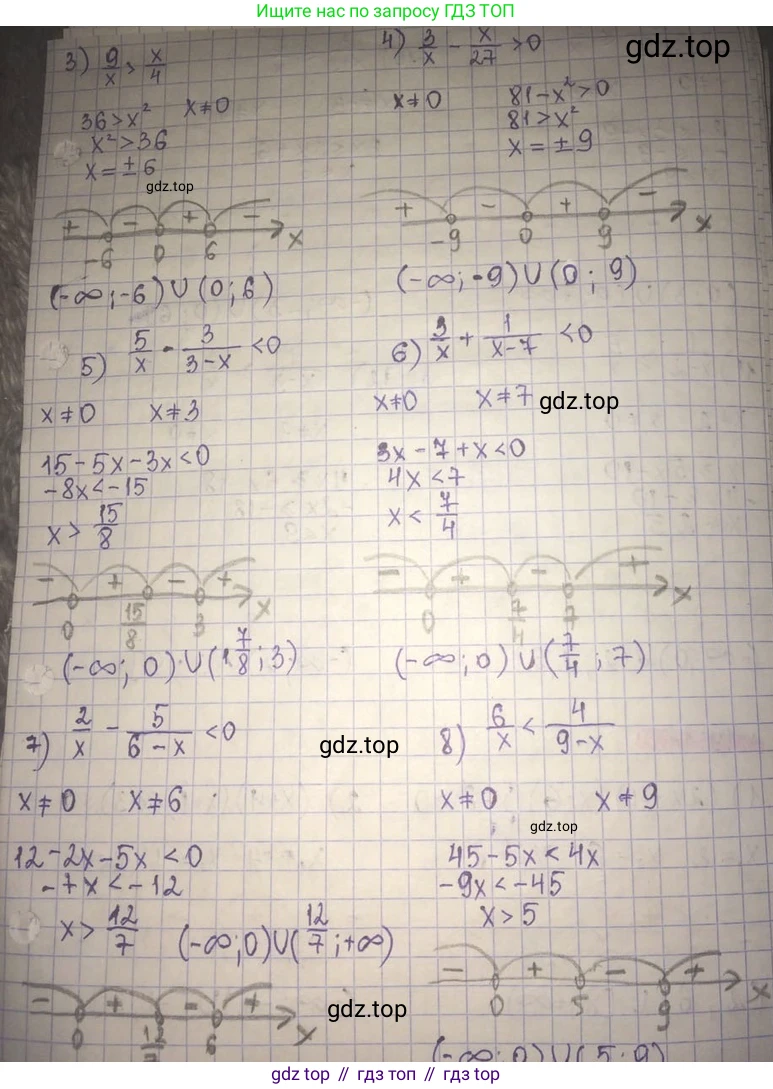 Ищите нас по запросу ГДЗ ТОП
gdz.top
3) 9/x > x/4
36 > x² x ≠ 0
x² > 36
x = ± 6
gdz.top
+ - + -
-6 0 6 x
(-∞; -6) ∪ (0; 6)
4) 3/x - x/27 > 0
x ≠ 0 81 - x² > 0
81 > x²
x = ± 9
+ - + -
-9 0 9 x
(-∞; -9) ∪ (0; 9)
5) 5/x - 3/(3-x) < 0
x ≠ 0 x ≠ 3
15 - 5x - 3x < 0
-8x < -15
x > 15/8
- + - +
0 15/8 3 x
(-∞; 0) ∪ (1 7/8; 3)
6) 3/x + 1/(x-7) < 0
x ≠ 0 x ≠ 7
gdz.top
3x - 7 + x < 0
4x < 7
x < 7/4
- + - +
0 7/4 7 x
(-∞; 0) ∪ (7/4; 7)
7) 2/x - 5/(6-x) < 0
gdz.top
x ≠ 0 x ≠ 6
12 - 2x - 5x < 0
-7x < -12
x > 12/7 (-∞; 0) ∪ (12/7; +∞)
- + - +
0 12 6 x
gdz.top
8) 6/x < 4/(9-x)
x ≠ 0 x ≠ 9
gdz.top
45 - 5x < 4x
-9x < -45
x > 5
- + - +
0 5 9 x
(-∞; 0) ∪ (5; 9)
gdz.top // гдз.топ // гдз топ